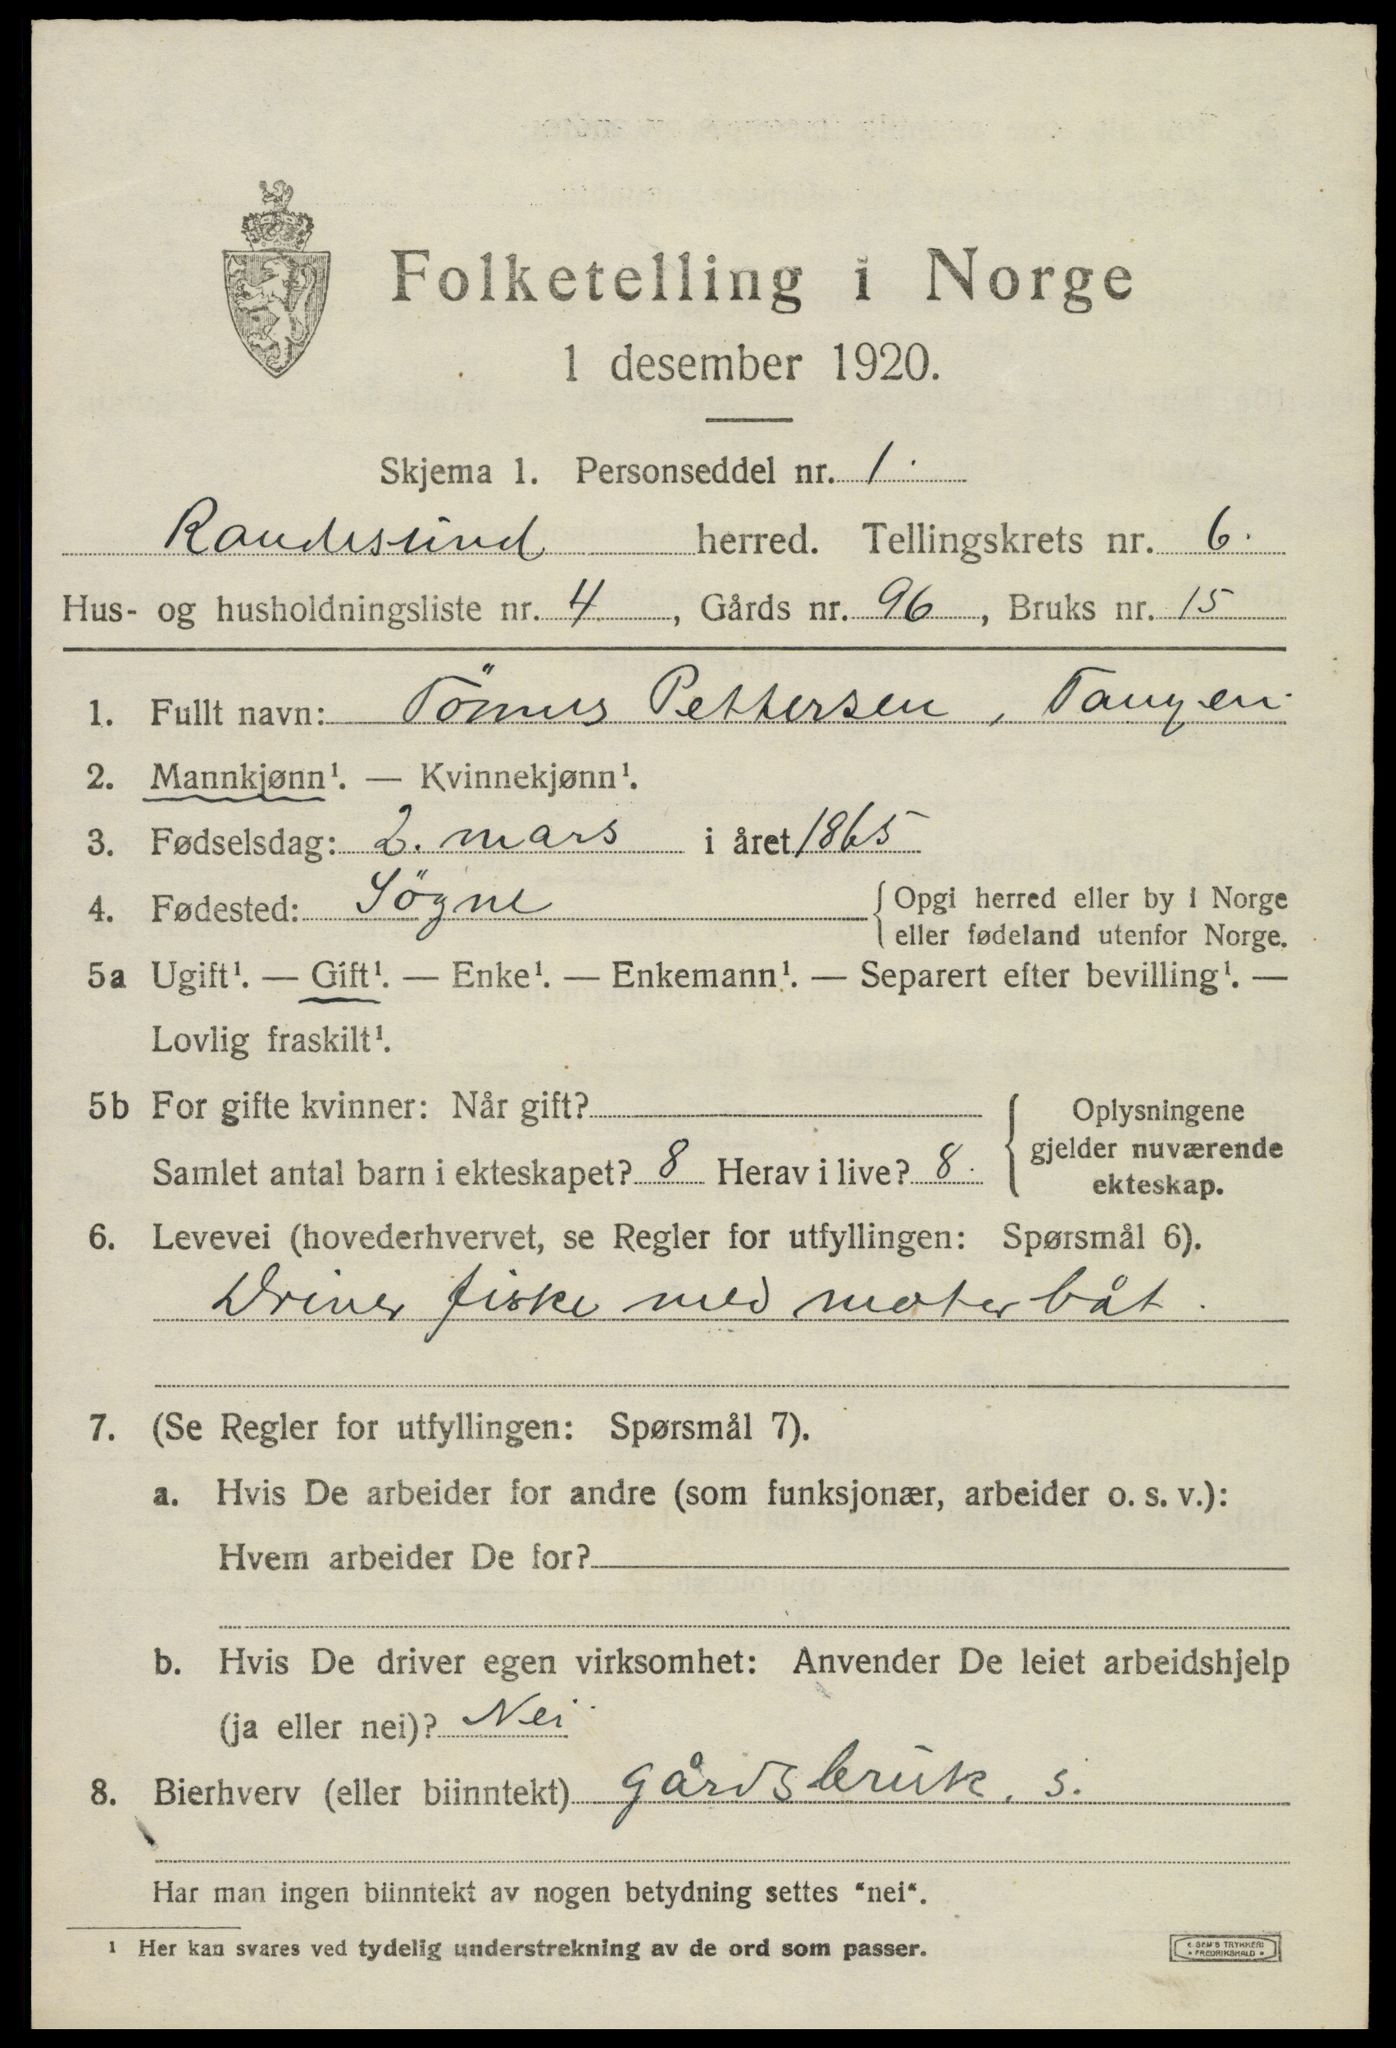 Folketelling i Norge
1 desember 1920.
Skjema 1. Personseddel nr. 1.
Randesund herred. Tellingskrets nr. 6.
Hus- og husholdningsliste nr. 4, Gårds nr. 96, Bruks nr. 15
1. Fullt navn: Tönnes Pettersen, Tangen
2. Mannkjønn¹. — Kvinnekjønn¹.
3. Fødselsdag: 2. mars i året 1865
4. Fødested: Sögne
Opgi herred eller by i Norge
eller fødeland utenfor Norge.
5a Ugift¹. — Gift¹. — Enke¹. — Enkemann¹. — Separert efter bevilling¹. —
Lovlig fraskilt¹.
5b For gifte kvinner: Når gift?
Samlet antal barn i ekteskapet? 8 Herav i live? 8.
Oplysningene
gjelder nuværende
ekteskap.
6. Levevei (hovederhvervet, se Regler for utfyllingen: Spørsmål 6).
Driver fiske med moterbåt.
7. (Se Regler for utfyllingen: Spørsmål 7).
a. Hvis De arbeider for andre (som funksjonær, arbeider o. s. v.):
Hvem arbeider De for?
b. Hvis De driver egen virksomhet: Anvender De leiet arbeidshjelp
(ja eller nei)? Nei
8. Bierhverv (eller biinntekt) gårdsbruk. s.
Har man ingen biinntekt av nogen betydning settes "nei".
¹ Her kan svares ved tydelig understrekning av de ord som passer.
E. SEM'S TRYKKERI
FREDRIKSHALD